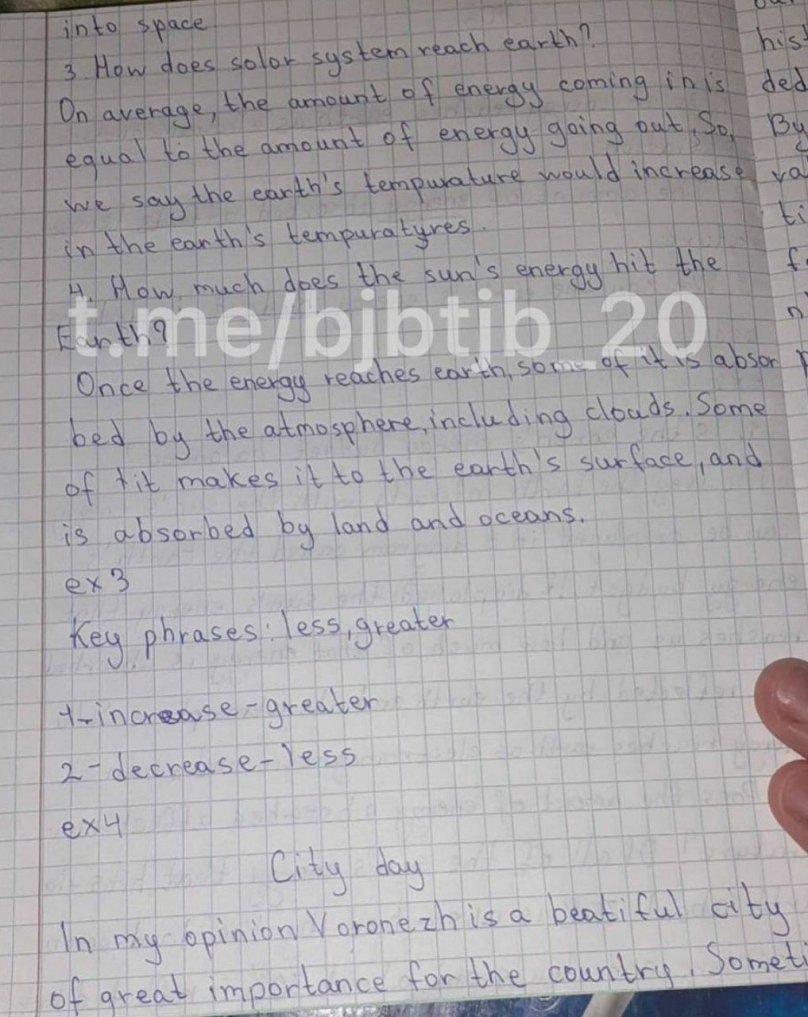 into space
3 How does solor system reach earth?
On average, the amount of energy coming in is
equal to the amount of energy going out. So,
we say the earth's tempurature would increase
in the earth's tempuratyres.
4. How much does the sun's energy hit the
Earth?
t.me/bjbtjb_20
Once the energy reaches earth, some of it is absor
bed by the atmosphere, including clouds. Some
of tit makes it to the earth's surface, and
is absorbed by land and oceans.
ex 3
Key phrases: less, greater
1-increase-greater
2-decrease-less
ex4
City day
In my opinion Voronezh is a beatiful city
of great importance for the country. Someti
his
ded
By
va
ti
f
n